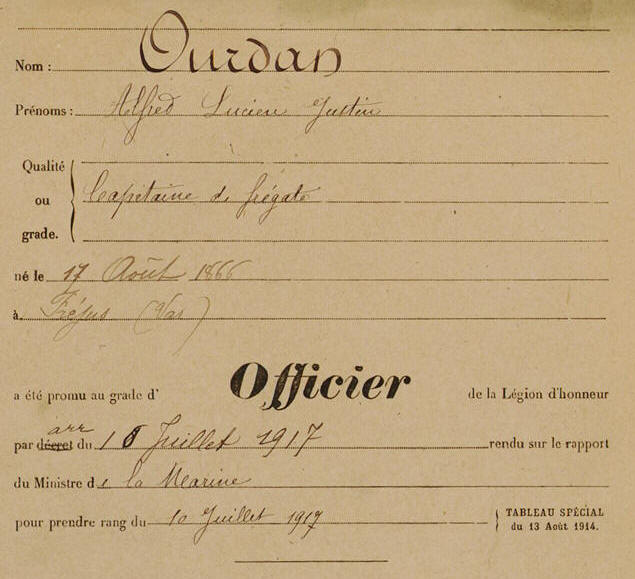 Nom : Ourdan
Prénoms : Alfred Lucien Justin
Qualité
ou Capitaine de frégate
grade.
né le 17 Août 1866
à Fréjus (Var)
a été promu au grade d' Officier de la Légion d'honneur
arr
par décret du 10 Juillet 1917 rendu sur le rapport
du Ministre de la Marine
pour prendre rang du 10 Juillet 1917 TABLEAU SPÉCIAL
du 13 Août 1914.